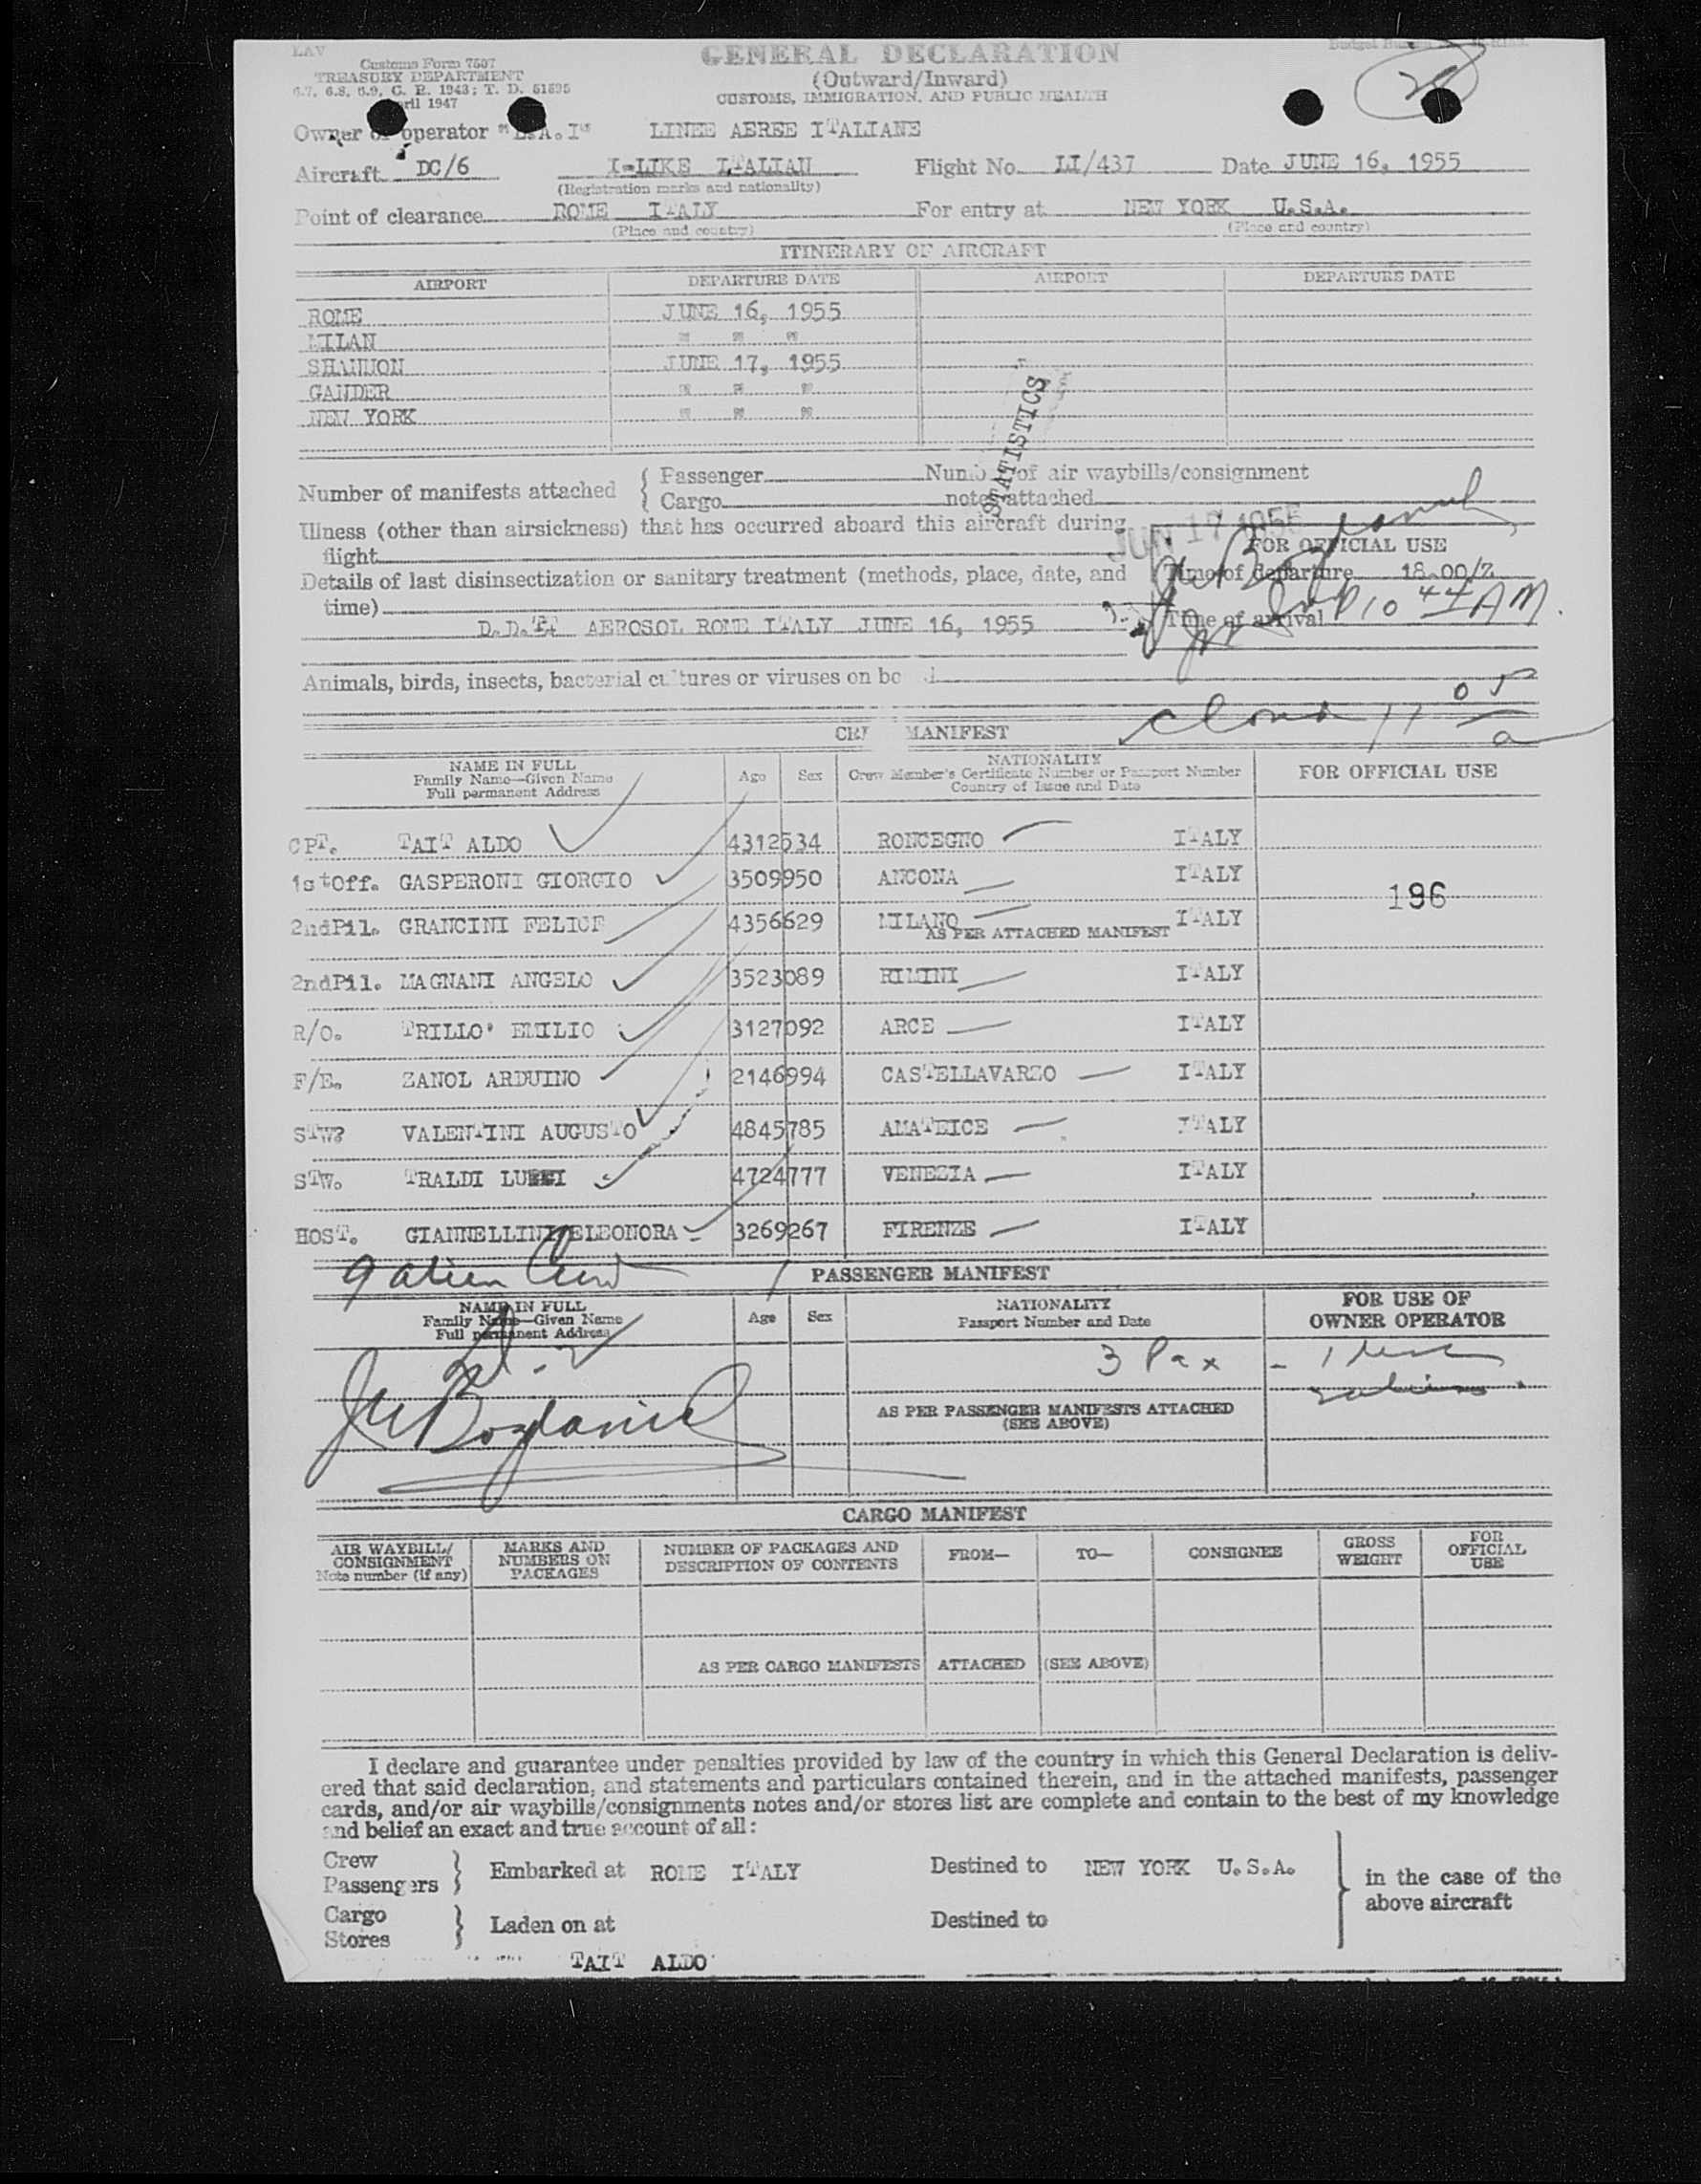 LAV
Customs Form 7507
TREASURY DEPARTMENT
6.7, 6.8, 6.9, C. R. 1943; T. D. 51595
April 1947
GENERAL DECLARATION
(Outward/Inward)
CUSTOMS, IMMIGRATION, AND PUBLIC HEALTH
Owner or operator "L.A.I" LINEE AEREE ITALIANE
Aircraft DC/6 I-LIKE ITALIAN Flight No. LI/437 Date JUNE 16, 1955
(Registration marks and nationality)
Point of clearance ROME ITALY For entry at NEW YORK U.S.A.
(Place and country) (Place and country)
ITINERARY OF AIRCRAFT
AIRPORT DEPARTURE DATE AIRPORT DEPARTURE DATE
ROME JUNE 16, 1955
MILAN " " "
SHANNON JUNE 17, 1955
GANDER " " "
NEW YORK " " "
STATISTICS
Number of manifests attached { Passenger Number of air waybills/consignment
Cargo notes attached
Illness (other than airsickness) that has occurred aboard this aircraft during
flight
JUN 17 1955
FOR OFFICIAL USE
Details of last disinsectization or sanitary treatment (methods, place, date, and
time)
Time of departure 18.00/Z
Time of arrival 10 44 AM.
D.D.T. AEROSOL ROME ITALY JUNE 16, 1955
Animals, birds, insects, bacterial cultures or viruses on board
11 05 a
CREW MANIFEST
NAME IN FULL
Family Name—Given Name
Full permanent Address
Age Sex
NATIONALITY
Crew Member's Certificate Number or Passport Number
Country of Issue and Date
FOR OFFICIAL USE
CPT. TAIT ALDO 4312534 RONCEGNO ITALY
1stOff. GASPERONI GIORGIO 3509950 ANCONA ITALY
196
2ndPil. GRANCINI FELICE 4356629 MILANO ITALY
AS PER ATTACHED MANIFEST
2ndPil. MAGNANI ANGELO 3523089 RIMINI ITALY
R/O. TRILLO' EMILIO 3127092 ARCE ITALY
F/E. ZANOL ARDUINO 2146994 CASTELLAVARZO ITALY
STW? VALENTINI AUGUSTO 4845785 AMATRICE ITALY
STW. TRALDI LUIGI 4724777 VENEZIA ITALY
HOST. GIANNELLINI ELEONORA 3269267 FIRENZE ITALY
9 alien Crew
PASSENGER MANIFEST
NAME IN FULL
Family Name—Given Name
Full permanent Address
Age Sex
NATIONALITY
Passport Number and Date
FOR USE OF
OWNER OPERATOR
3 Pax - 1
AS PER PASSENGER MANIFESTS ATTACHED
(SEE ABOVE)
CARGO MANIFEST
AIR WAYBILL/
CONSIGNMENT
Note number (if any)
MARKS AND
NUMBERS ON
PACKAGES
NUMBER OF PACKAGES AND
DESCRIPTION OF CONTENTS
FROM—
TO—
CONSIGNEE
GROSS
WEIGHT
FOR
OFFICIAL
USE
AS PER CARGO MANIFESTS ATTACHED (SEE ABOVE)
I declare and guarantee under penalties provided by law of the country in which this General Declaration is deliv-
ered that said declaration, and statements and particulars contained therein, and in the attached manifests, passenger
cards, and/or air waybills/consignments notes and/or stores list are complete and contain to the best of my knowledge
and belief an exact and true account of all:
Crew
Passengers } Embarked at ROME ITALY Destined to NEW YORK U.S.A.
in the case of the
above aircraft
Cargo
Stores } Laden on at Destined to
TAIT ALDO